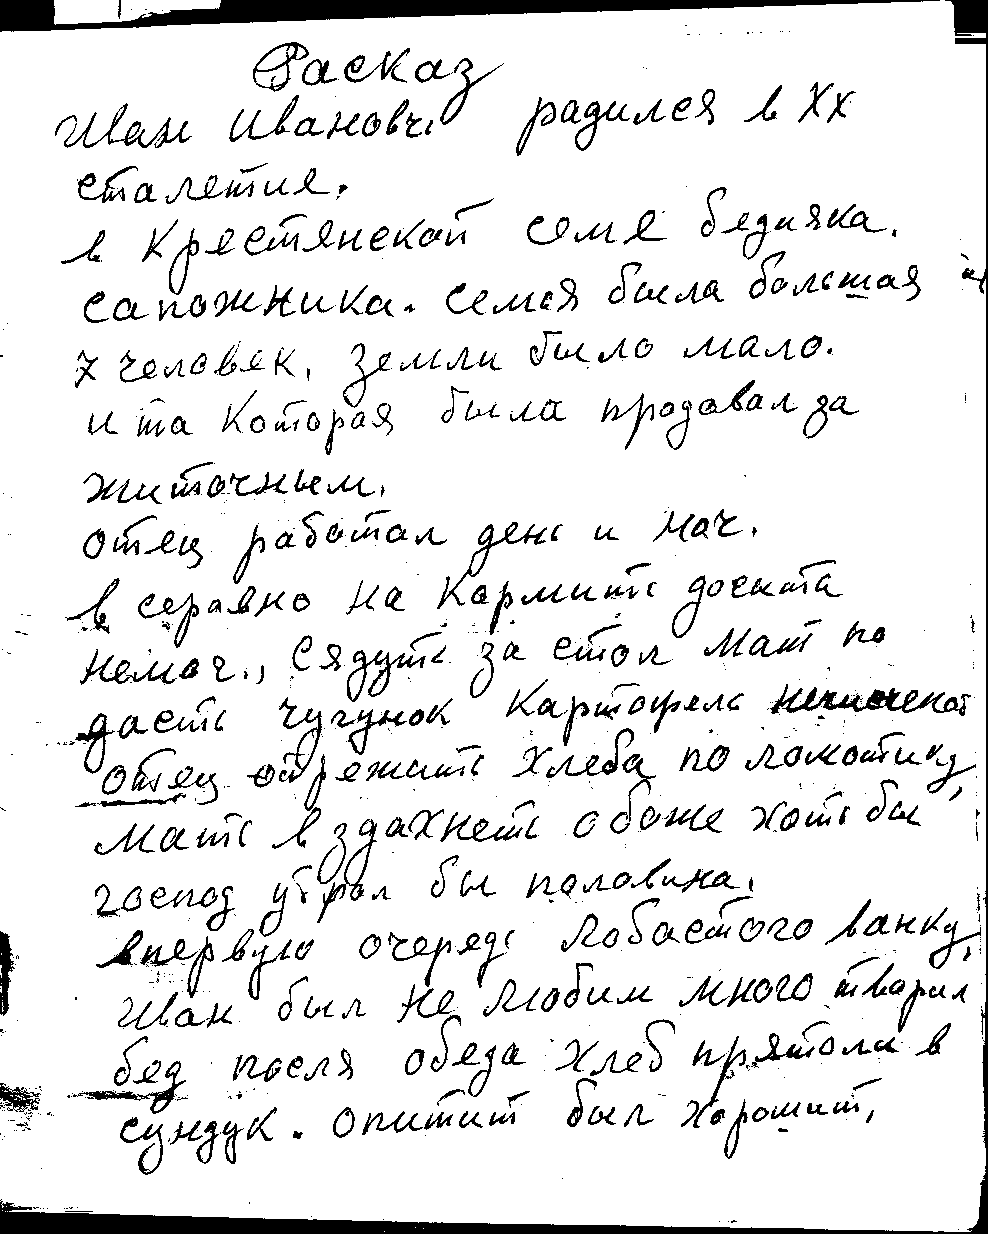 Расказ
Иван Иванович радился в XX
сталетие.
в Крестянской семе бедняка.
сапожника. семья была большая и
7 человек, земли было мало.
и та Которая была продавал за
житочным.
отец работал день и ноч.
в серавно на Кормить досыта
немог., Сядуть за стол мат по
дасть чугунок Картофель нечищеной
отец отрежить хлеба по ломотику,
мать в здахнеть о боже хоть бы
господ убрал бы половина.
впервую очередь лобастого ванку,
Иван был не любим много тварил
бед посля обеда хлеб прятоли в
сундук. опитит был хороший,